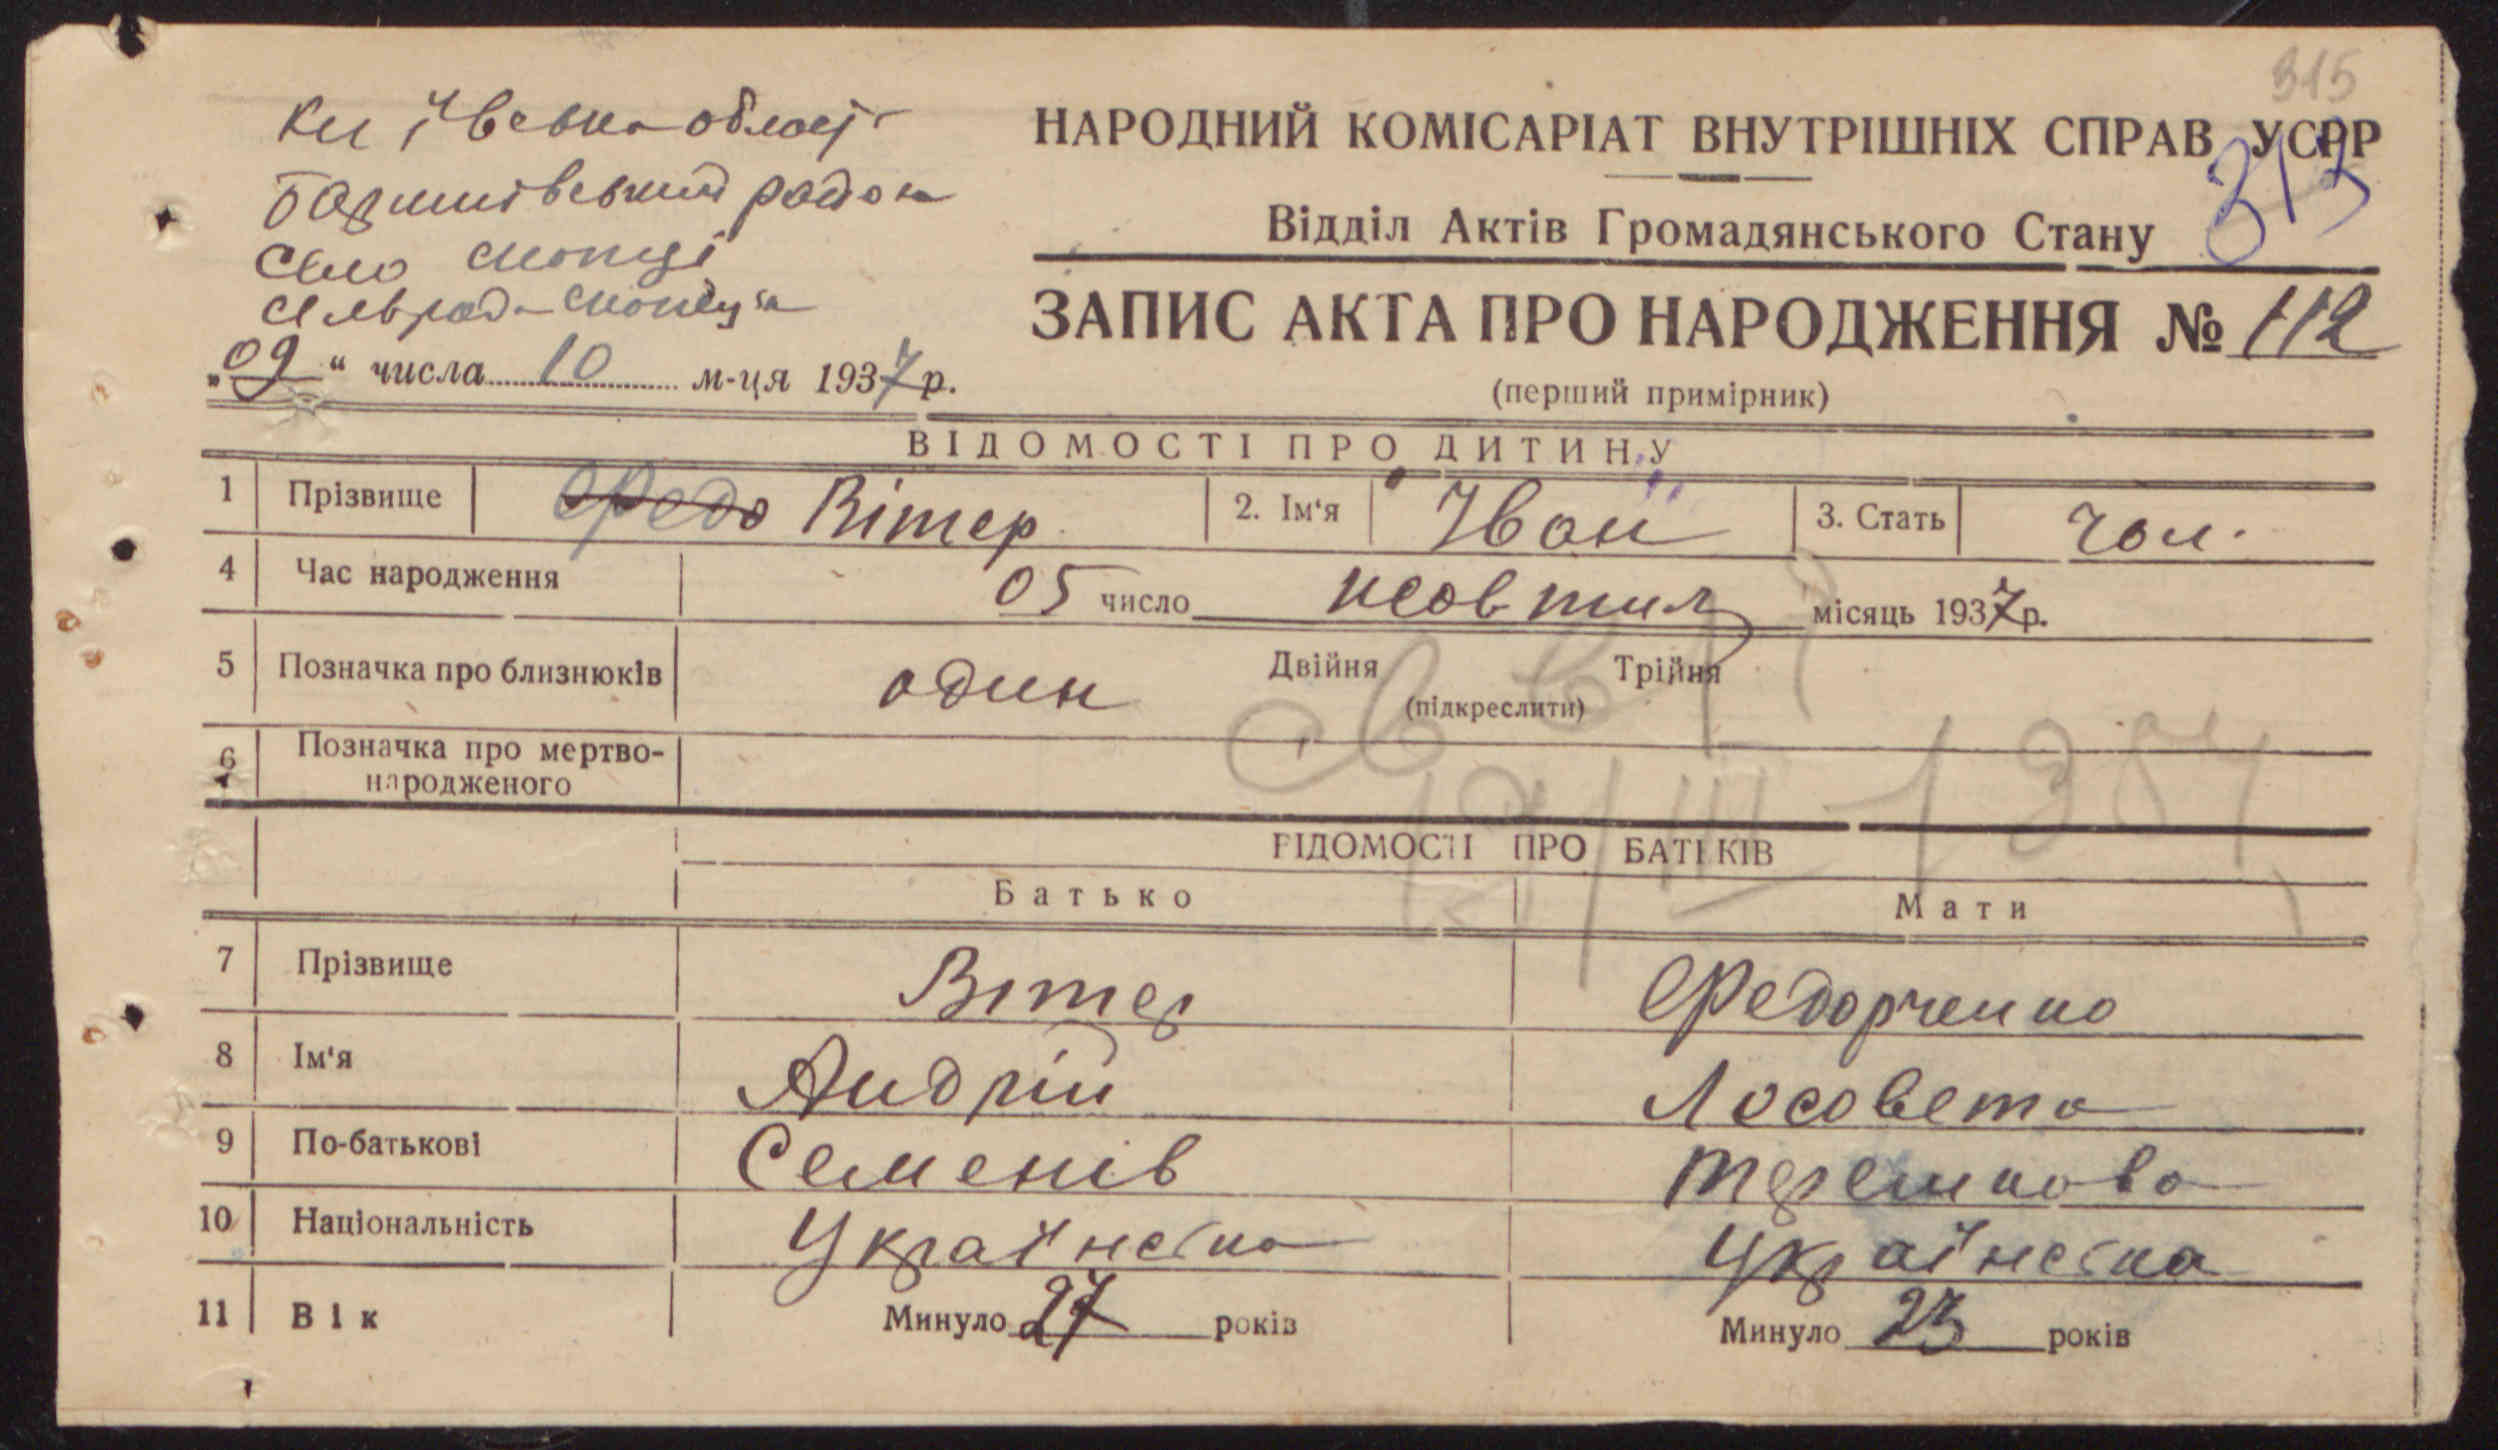 315
Київська област
Баришівський район
Село Скопці
Сільрада Скопецька
„09“ числа 10 м-ця 1937р.
НАРОДНИЙ КОМІСАРІАТ ВНУТРІШНІХ СПРАВ УСРР
313
Відділ Актів Громадянського Стану
ЗАПИС АКТА ПРО НАРОДЖЕННЯ № 112
(перший примірник)
ВІДОМОСТІ ПРО ДИТИНУ
1 Прізвище Федо Вітер 2. Ім'я Іван 3. Стать чол.
4 Час народження 05 число жовтня місяць 1937р.
5 Позначка про близнюків один Двійня Трійня
(підкреслити)
6 Позначка про мертво-
народженого
ВІДОМОСТІ ПРО БАТЬКІВ
Батько Мати
7 Прізвище Вітер Федорченко
8 Ім'я Андрій Лосовета
9 По-батькові Семенів Терешкова
10 Національність Українська Українська
11 Вік Минуло 27 років Минуло 23 років